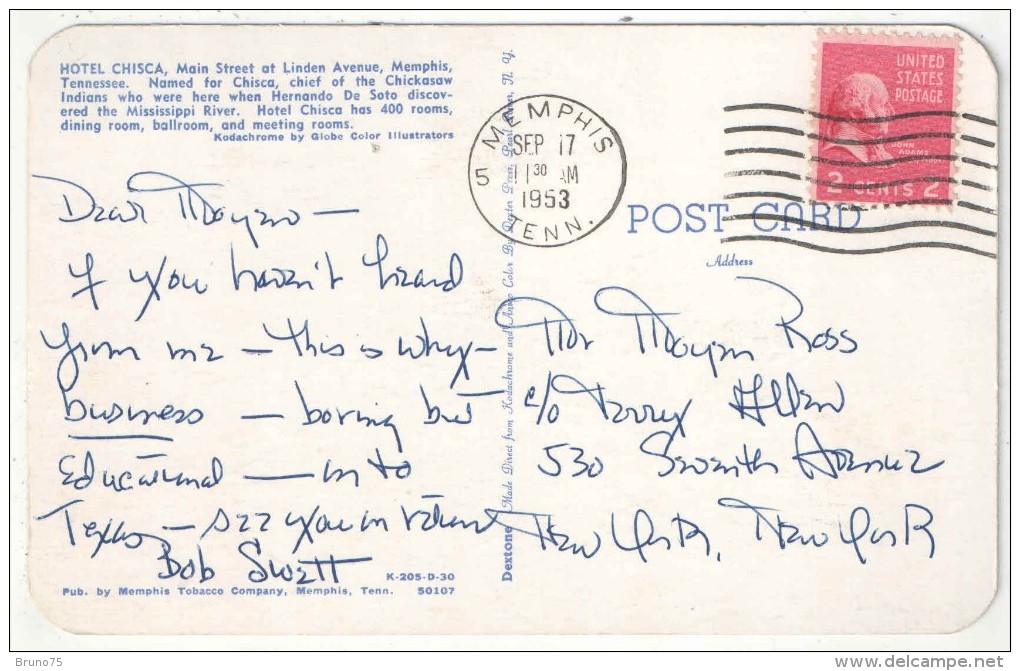 HOTEL CHISCA, Main Street at Linden Avenue, Memphis,
Tennessee. Named for Chisca, chief of the Chickasaw
Indians who were here when Hernando De Soto discov-
ered the Mississippi River. Hotel Chisca has 400 rooms,
dining room, ballroom, and meeting rooms.
Kodachrome by Globe Color Illustrators
Dear
If you haven't heard
from me – this is why –
business – boring but
Educational – on to
Texas – see you on return
Bob Swett
K-205-D-30
Pub. by Memphis Tobacco Company, Memphis, Tenn. 50107
Dextone Made Direct from Kodachrome and Ansco Color By Dexter Press, Pearl River, N. Y.
MEMPHIS
SEP 17
5 11 30 AM
1953
TENN.
UNITED
STATES
POSTAGE
JOHN
ADAMS
2 CENTS 2
POST CARD
Address
Mr Ross
c/o Terry Allen
530 Seventh Avenue
New York, New York
Bruno75
delcampe.net